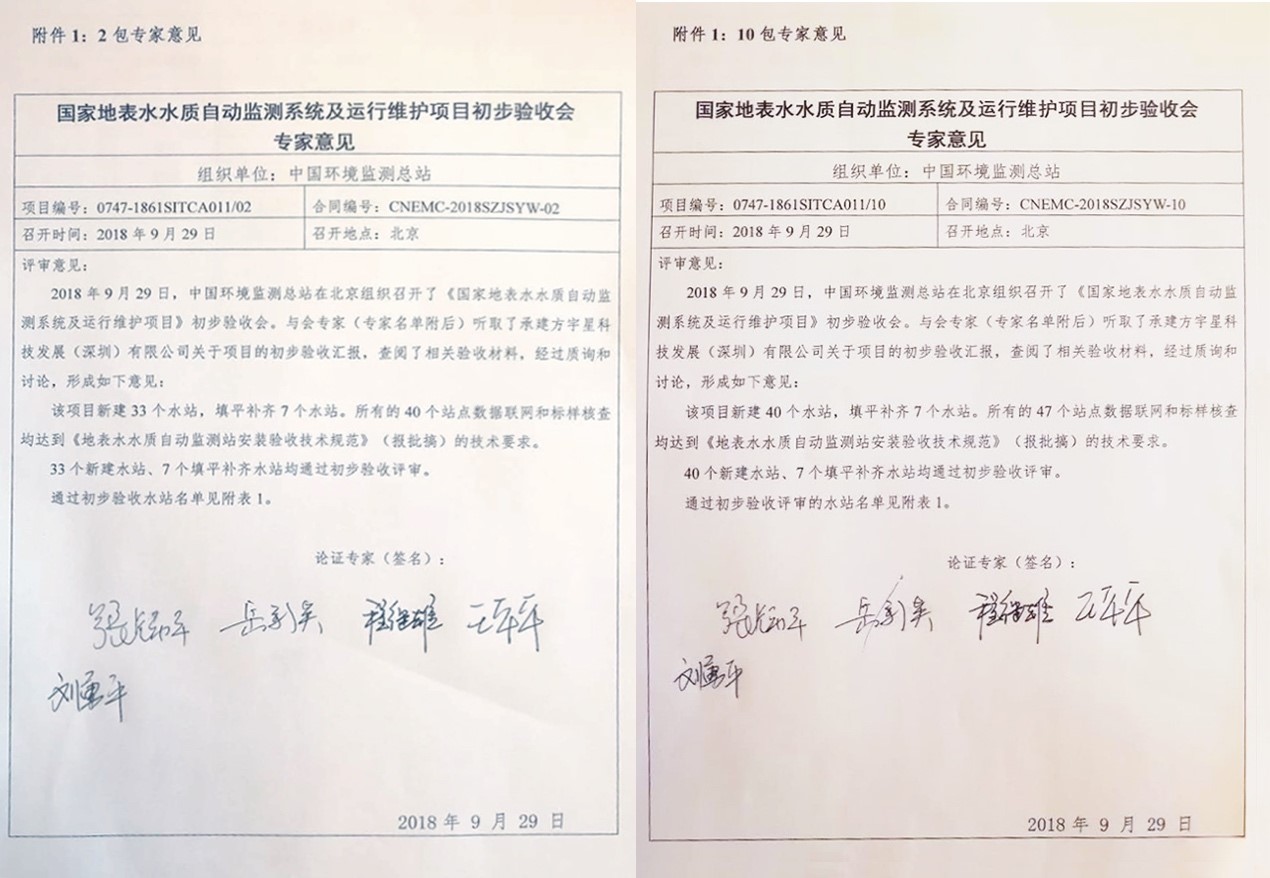 附件 1：2 包专家意见
国家地表水水质自动监测系统及运行维护项目初步验收会
专家意见
组织单位：中国环境监测总站
项目编号：0747-1861SITCA011/02
合同编号：CNEMC-2018SZJSYW-02
召开时间：2018 年 9 月 29 日
召开地点：北京
评审意见：
2018 年 9 月 29 日，中国环境监测总站在北京组织召开了《国家地表水水质自动监
测系统及运行维护项目》初步验收会。与会专家（专家名单附后）听取了承建方宇星科
技发展（深圳）有限公司关于项目的初步验收汇报，查阅了相关验收材料，经过质询和
讨论，形成如下意见：
该项目新建 33 个水站，填平补齐 7 个水站。所有的 40 个站点数据联网和标样核查
均达到《地表水水质自动监测站安装验收技术规范》（报批搞）的技术要求。
33 个新建水站、7 个填平补齐水站均通过初步验收评审。
通过初步验收水站名单见附表 1。
论证专家（签名）：
程继雄
刘勇平
2018 年 9 月 29 日
附件 1：10 包专家意见
国家地表水水质自动监测系统及运行维护项目初步验收会
专家意见
组织单位：中国环境监测总站
项目编号：0747-1861SITCA011/10
合同编号：CNEMC-2018SZJSYW-10
召开时间：2018 年 9 月 29 日
召开地点：北京
评审意见：
2018 年 9 月 29 日，中国环境监测总站在北京组织召开了《国家地表水水质自动监
测系统及运行维护项目》初步验收会。与会专家（专家名单附后）听取了承建方宇星科
技发展（深圳）有限公司关于项目的初步验收汇报，查阅了相关验收材料，经过质询和
讨论，形成如下意见：
该项目新建 40 个水站，填平补齐 7 个水站。所有的 47 个站点数据联网和标样核查
均达到《地表水水质自动监测站安装验收技术规范》（报批搞）的技术要求。
40 个新建水站、7 个填平补齐水站均通过初步验收评审。
通过初步验收评审的水站名单见附表 1。
论证专家（签名）：
程继雄
刘勇平
2018 年 9 月 29 日